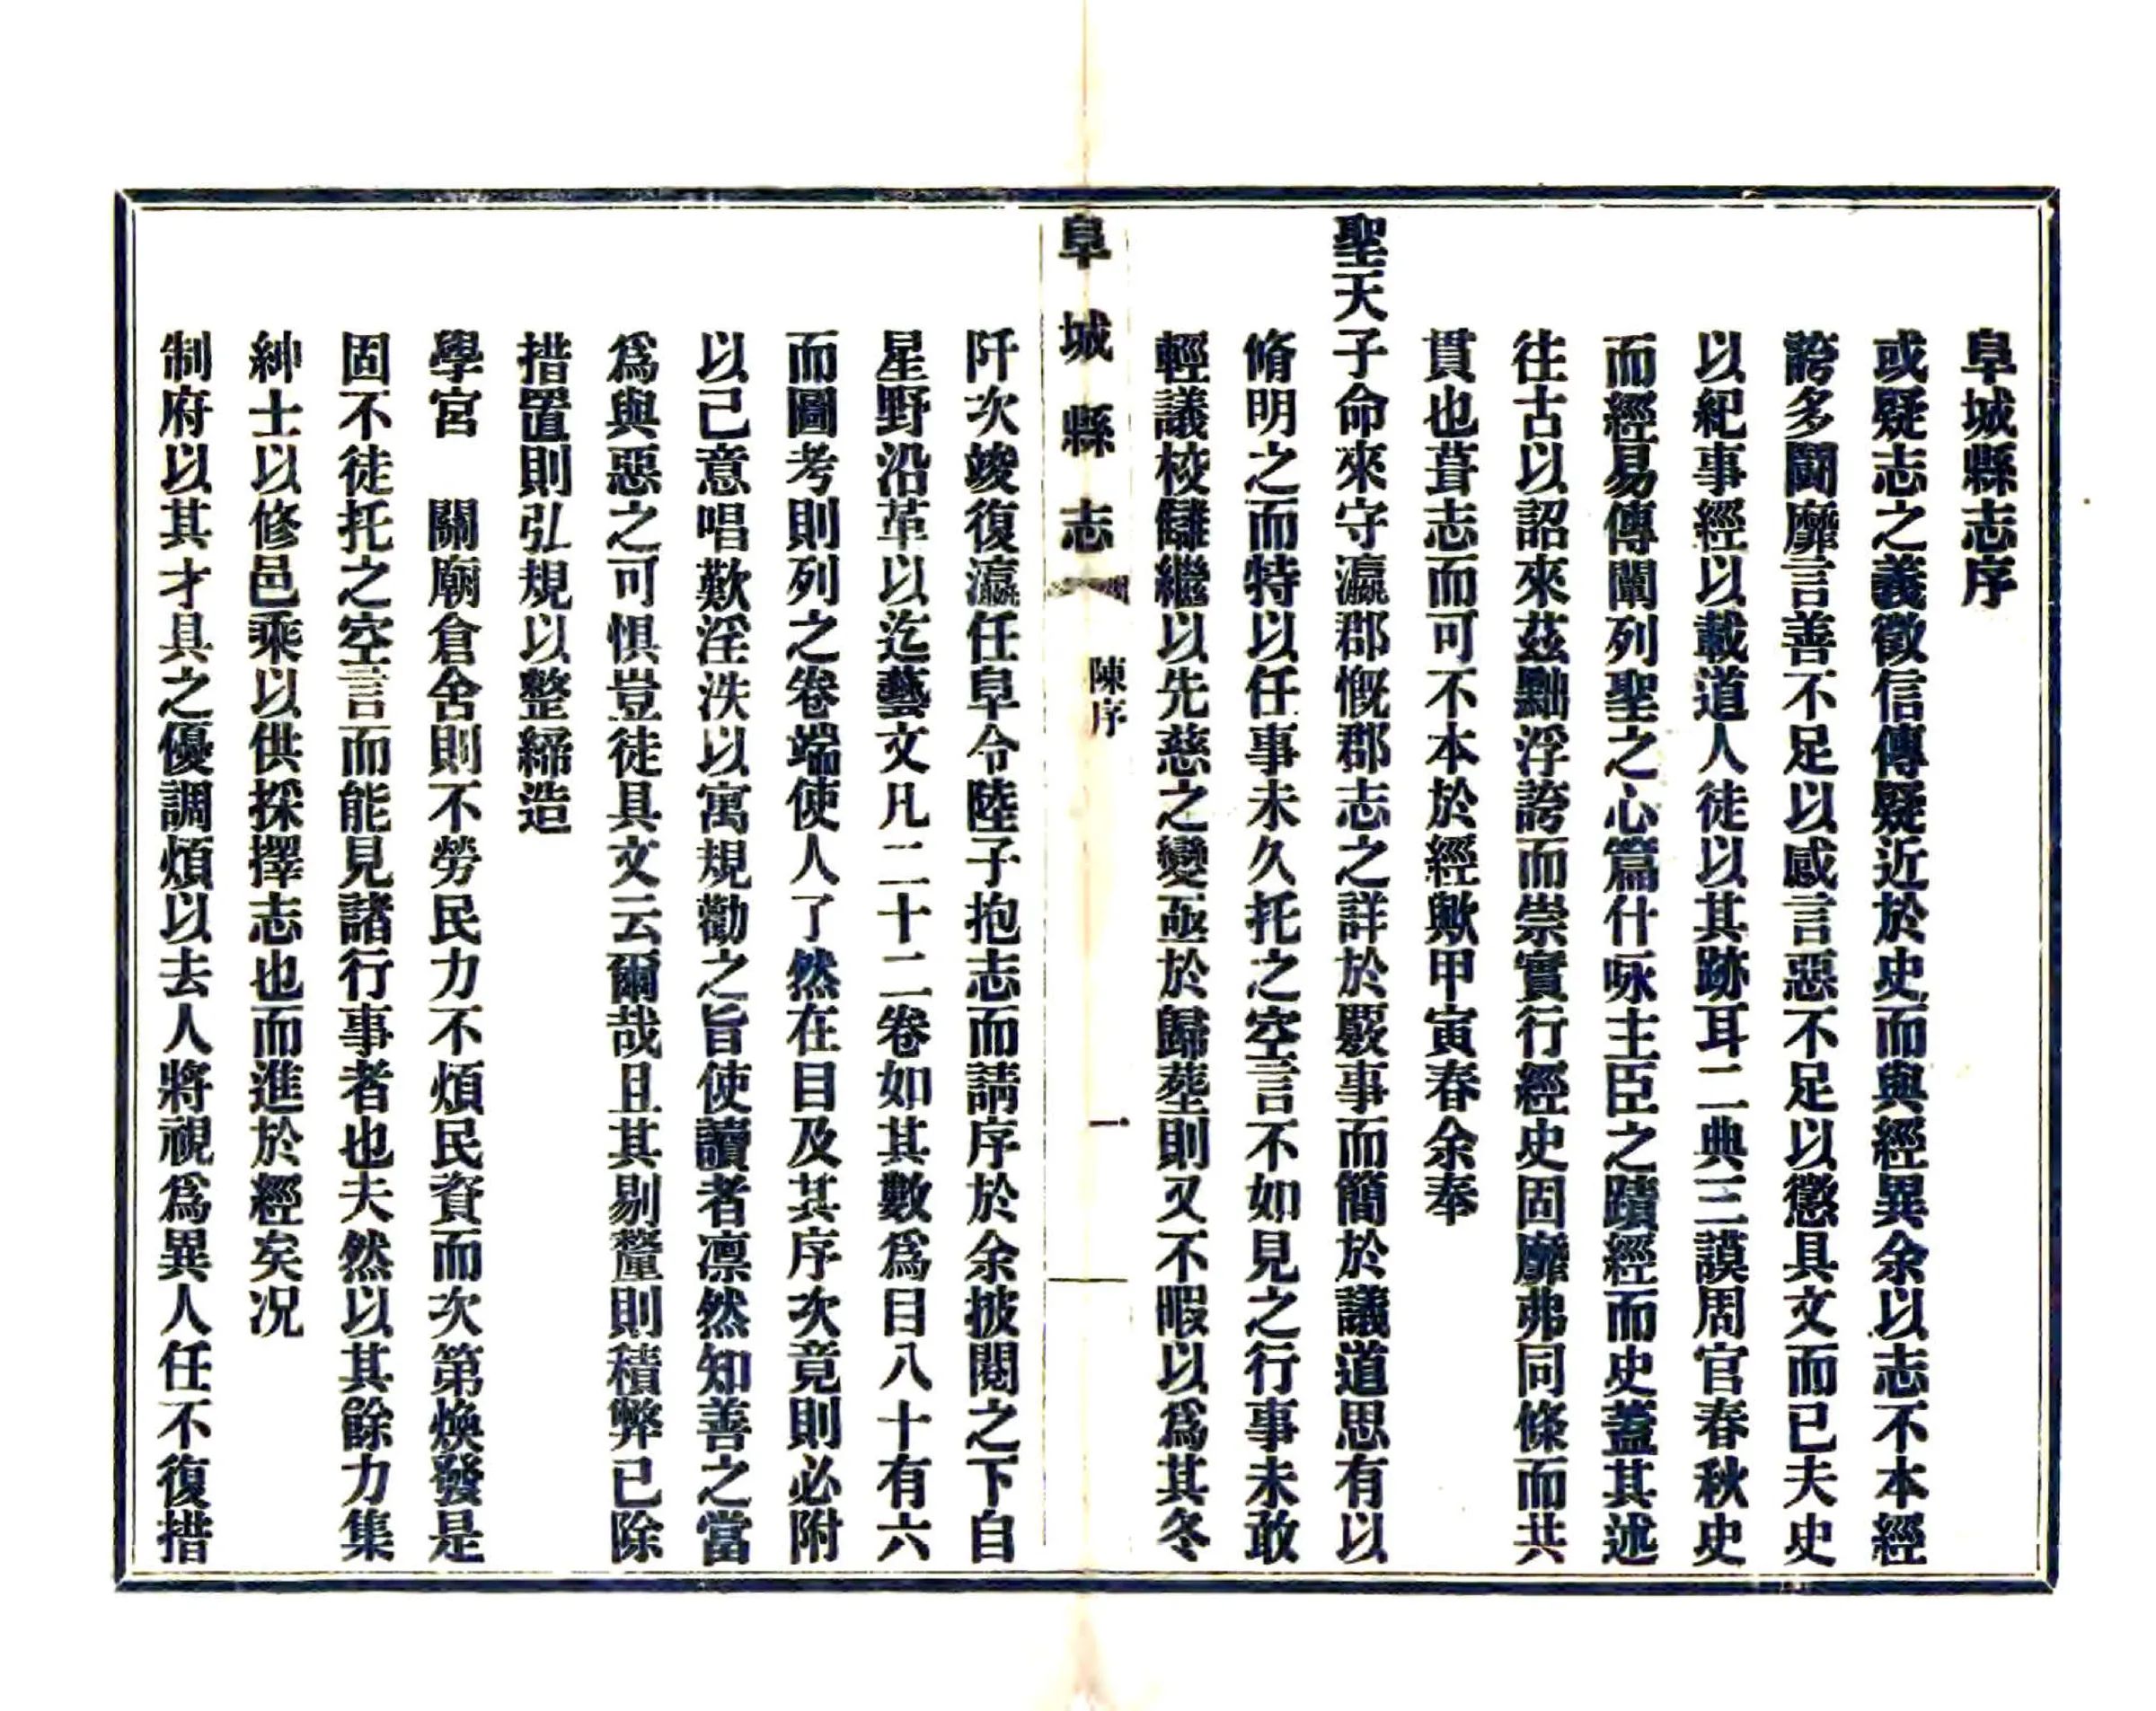 阜城縣志序
或疑志之義徵信傳疑近於史而與經異余以志不本經
誇多鬬靡言善不足以感言惡不足以懲具文而已夫史
以紀事經以載道人徒以其跡耳二典三謨周官春秋史
而經易傳闡列聖之心篇什咏主臣之蹟經而史蓋其述
往古以詔來茲黜浮誇而崇實行經史固靡弗同條而共
貫也葺志而可不本於經歟甲寅春余奉
聖天子命來守瀛郡慨郡志之詳於敘事而簡於議道思有以
脩明之而特以任事未久托之空言不如見之行事未敢
輕議校讎繼以先慈之變亟於歸塟則又不暇以爲其冬
阜城縣志
陳序
一
阡次竣復瀛任阜令陸子抱志而請序於余披閱之下自
星野沿革以迄藝文凡二十二卷如其數爲目八十有六
而圖考則列之卷端使人了然在目及其序次竟則必附
以己意唱歎淫泆以寓規勸之旨使讀者凛然知善之當
爲與惡之可惧豈徒具文云爾哉且其剔釐則積弊已除
措置則弘規以整締造
學宮　關廟倉舍則不勞民力不煩民資而次第煥發是
固不徒托之空言而能見諸行事者也夫然以其餘力集
紳士以修邑乘以供採擇志也而進於經矣况
制府以其才具之優調煩以去人將視爲異人任不復措